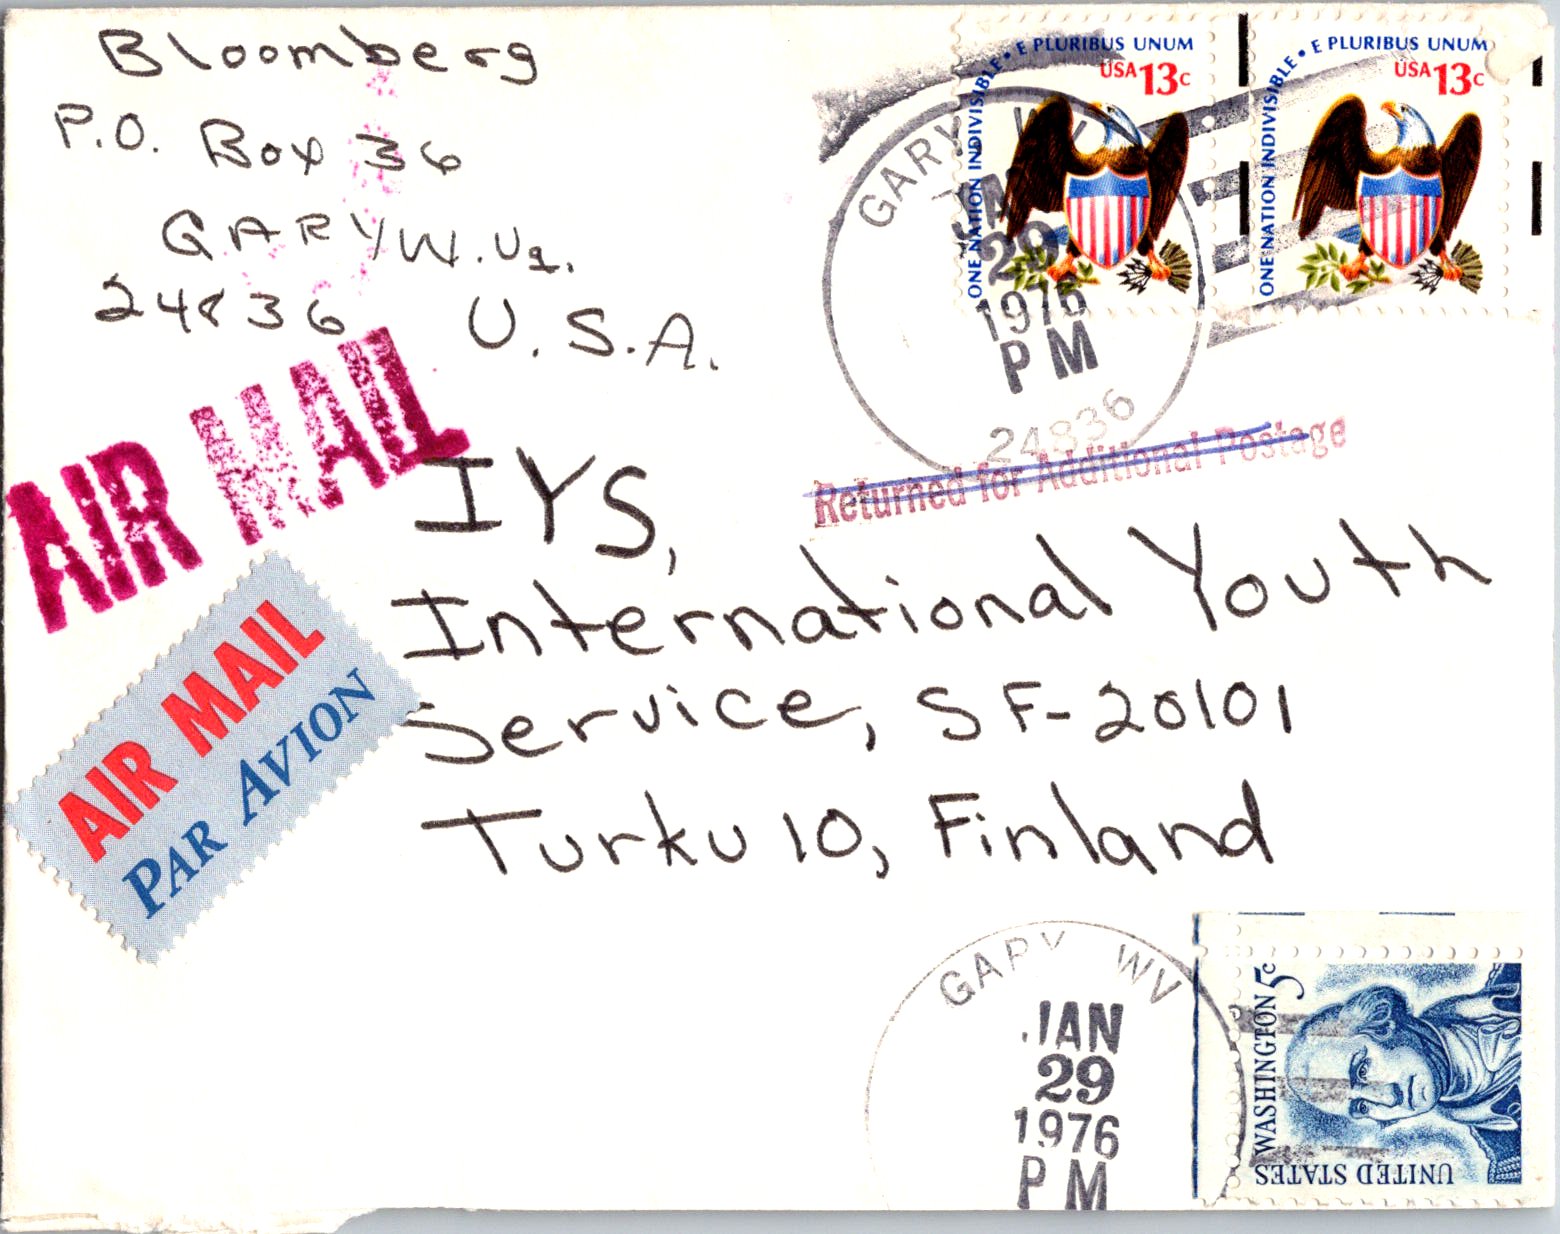 Bloomberg
P.O. Box 36
GARY W.Va.
24836 U.S.A.
ONE NATION INDIVISIBLE • E PLURIBUS UNUM
USA 13c
ONE NATION INDIVISIBLE • E PLURIBUS UNUM
USA 13c
GARY WV
JAN
29
1976
PM
24836
Returned for Additional Postage
AIR MAIL
AIR MAIL
PAR AVION
IYS,
International Youth
Service, SF-20101
Turku 10, Finland
GARY WV
JAN
29
1976
PM
WASHINGTON 5c
UNITED STATES